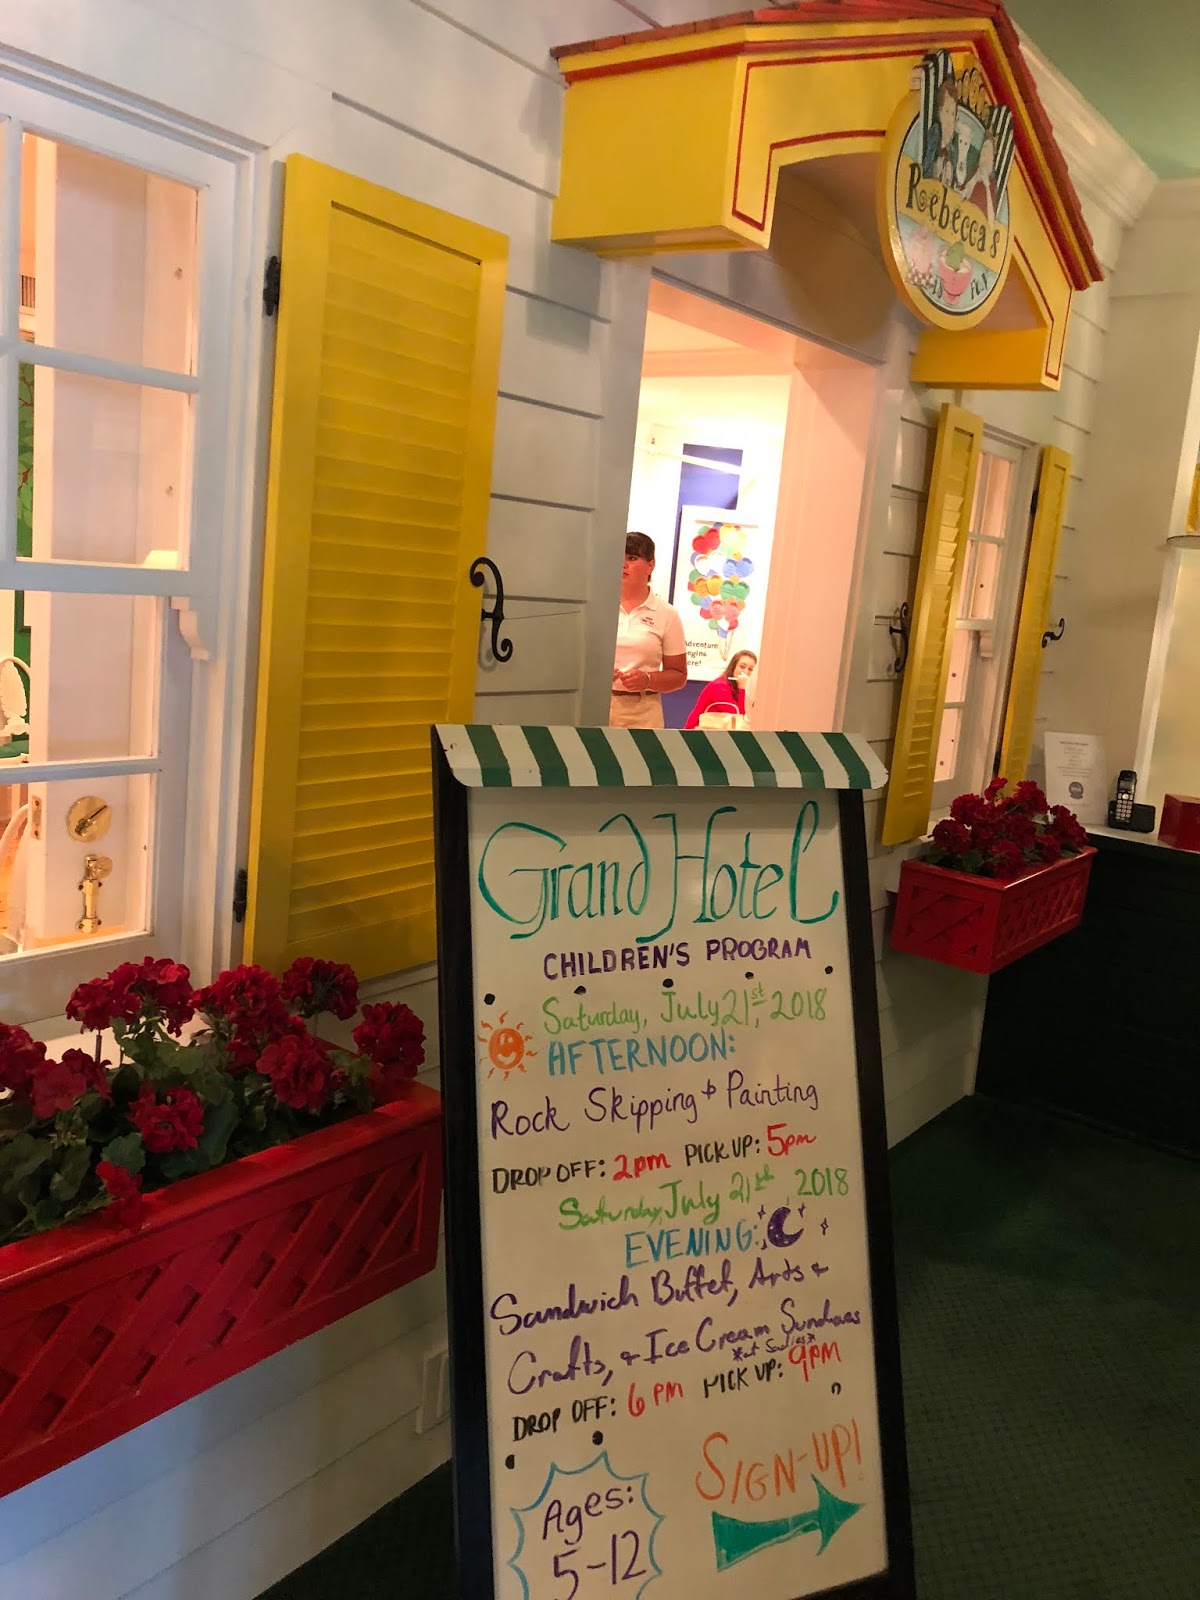 Rebecca's
Adventure
Begins
Here!
Grand Hotel
CHILDREN'S PROGRAM
Saturday, July 21st, 2018
AFTERNOON:
Rock Skipping & Painting
DROP OFF: 2pm PICK UP: 5pm
Saturday, July 21st, 2018
EVENING:
Sandwich Buffet, Arts &
Crafts, & Ice Cream Sundaes
*at Sadies*
DROP OFF: 6 PM PICK UP: 9PM
SIGN-UP!
Ages:
5-12